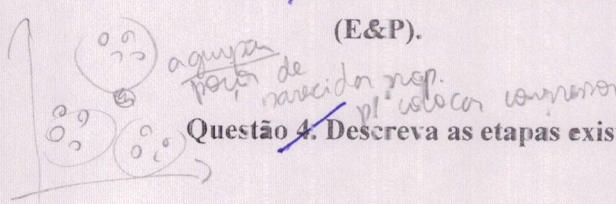 (E&P).
agrupar
poços de
parecidos prop.
p/ colocar compressor
Questão 4. Descreva as etapas exis